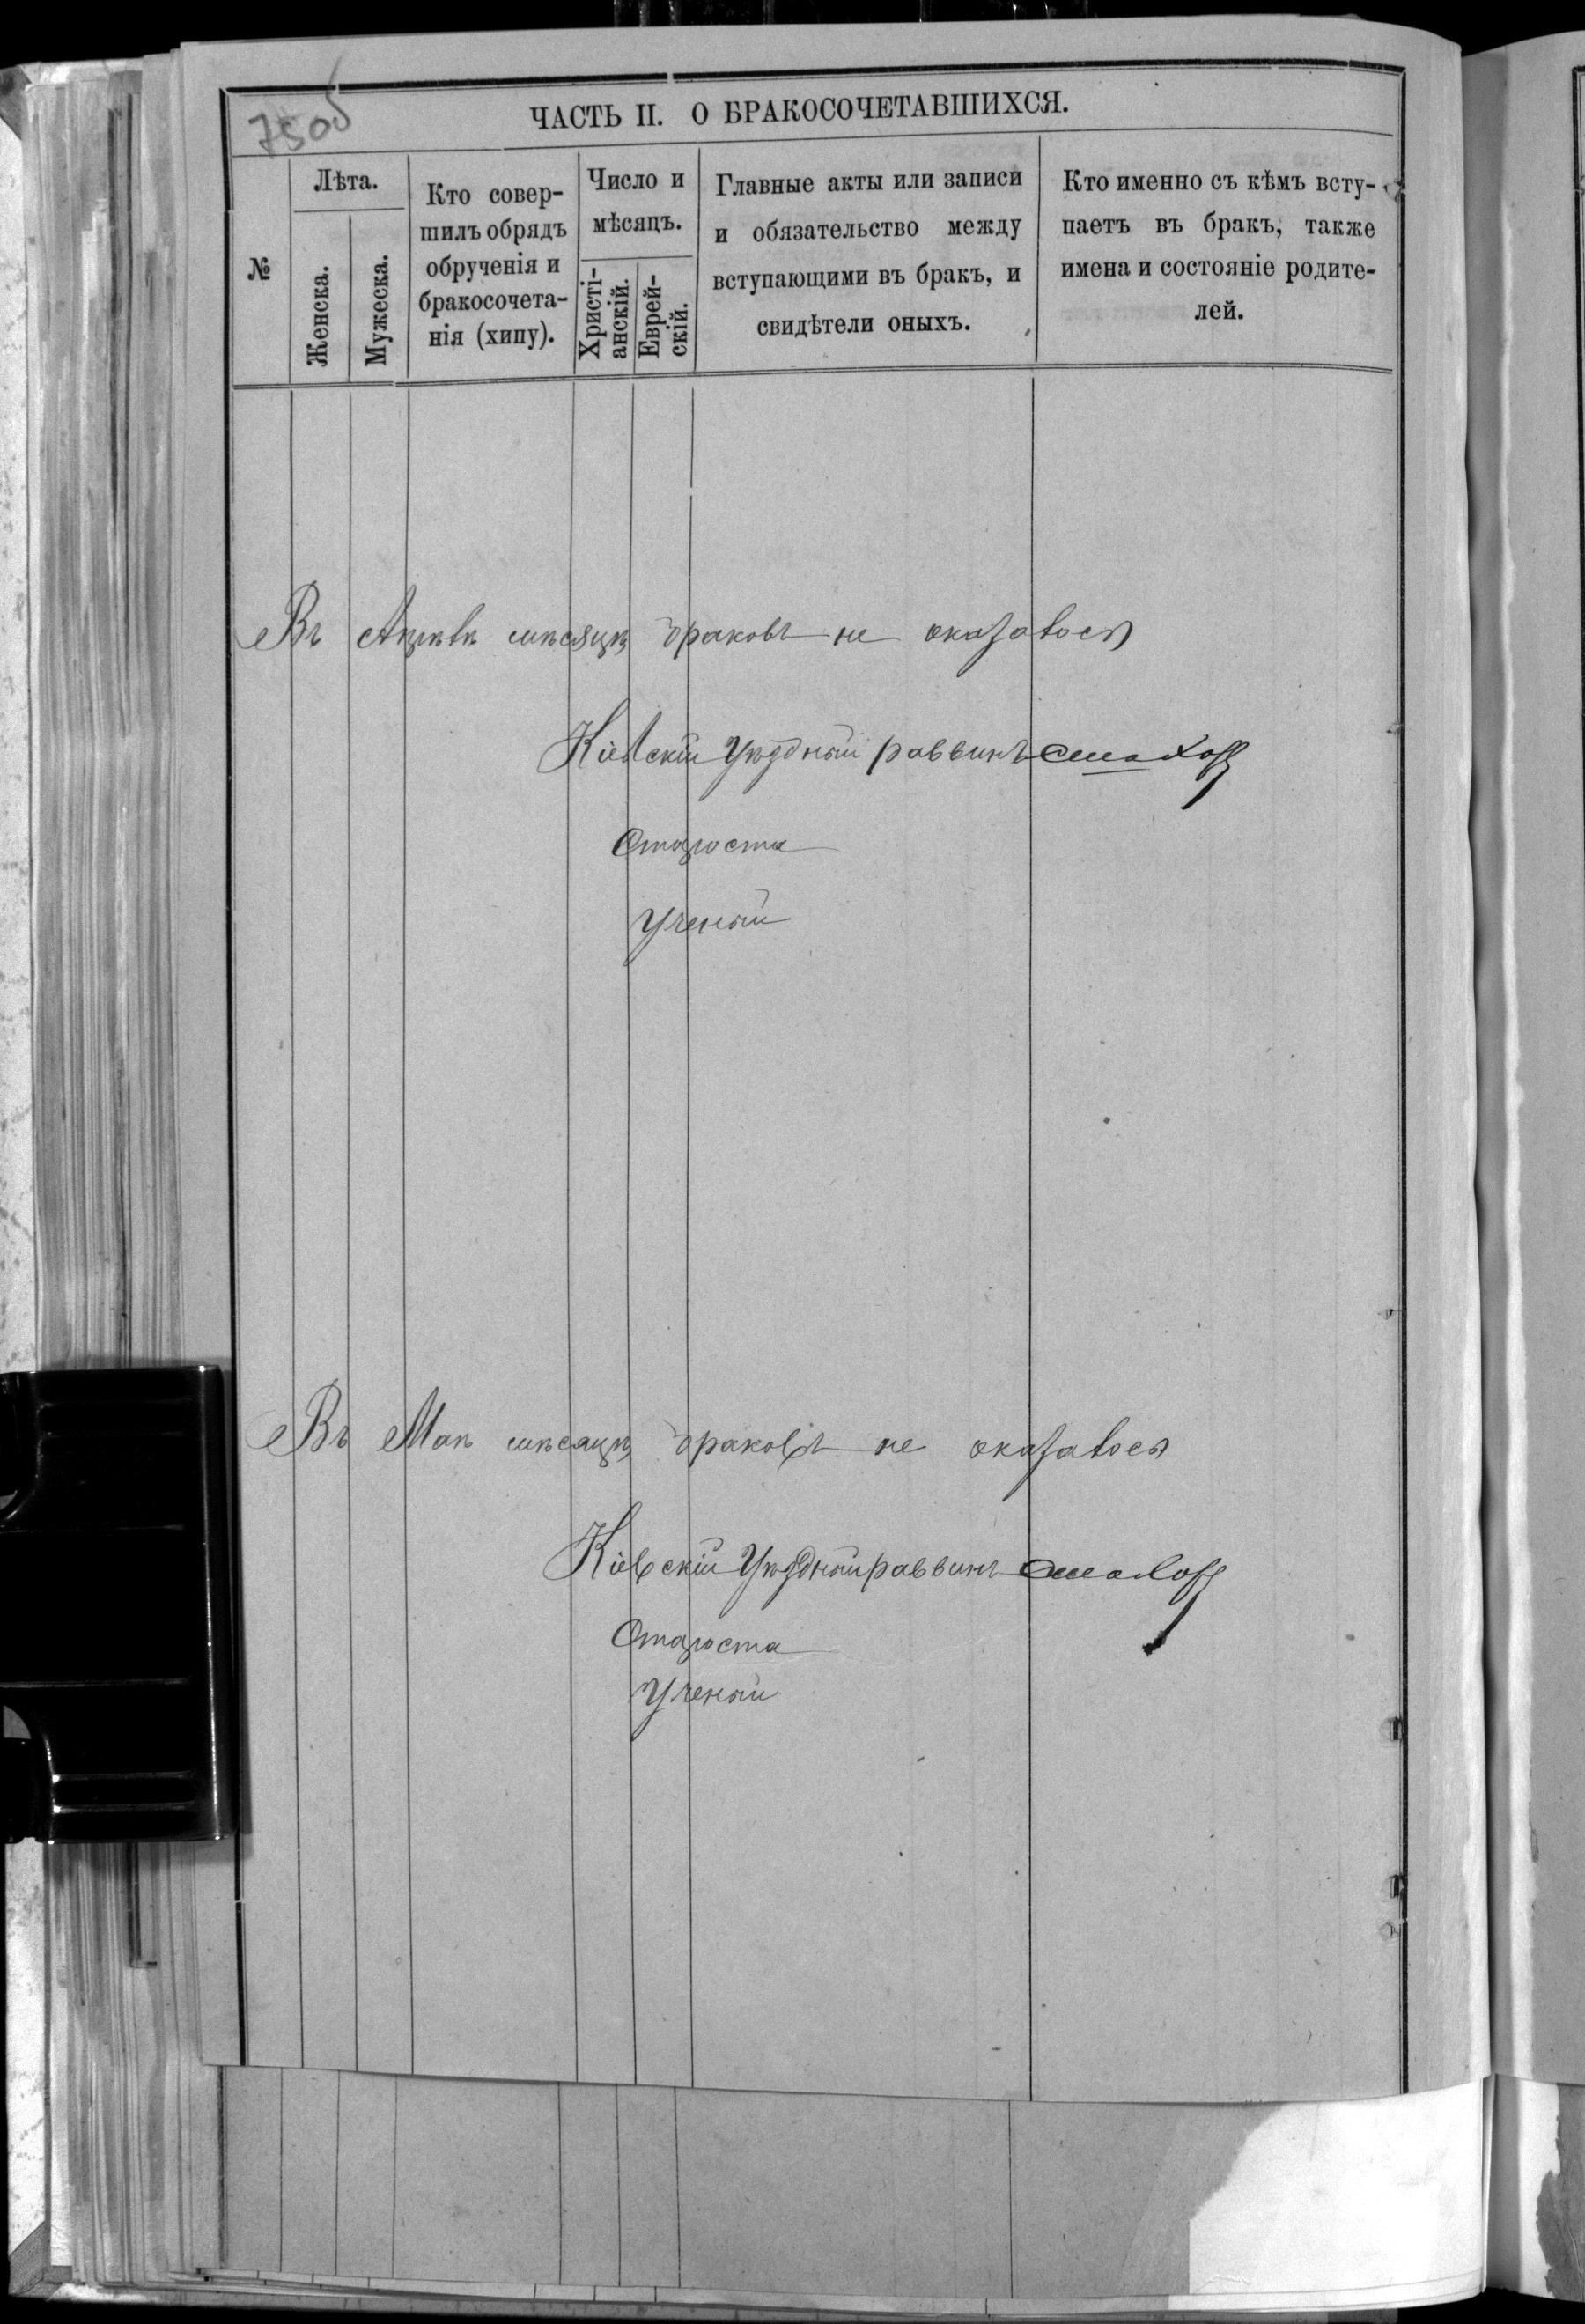 750б
ЧАСТЬ II. О БРАКОСОЧЕТАВШИХСЯ.
№
Лѣта.
Женска.
Мужеска.
Кто совер-
шилъ обрядъ
обрученія и
бракосочета-
нія (хипу).
Число и
мѣсяцъ.
Христі-
анскій.
Еврей-
скій.
Главные акты или записи
и обязательство между
вступающими въ бракъ, и
свидѣтели оныхъ.
Кто именно съ кѣмъ всту-
паетъ въ бракъ, также
имена и состояніе родите-
лей.
Въ мѣсяцѣ браковъ не оказалось
Кіевскій Уѣздный раввинъ
Староста
Ученый
Въ Маѣ мѣсяцѣ браковъ не оказалось
Кіевскій Уѣздный раввинъ
Староста
Ученый